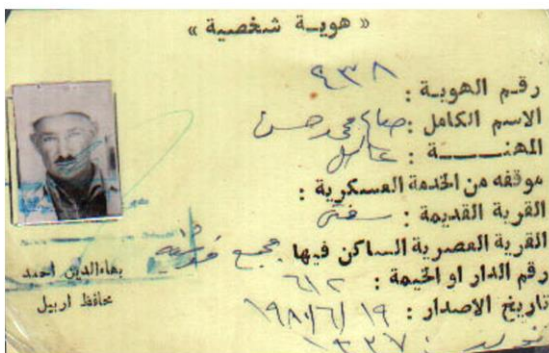 « هوية شخصية »
رقم الهوية : ٩٣٨
الاسم الكامل : صالح محمد حسن
المهنـــة : عامل
موقفه من الخدمة العسكرية :
القرية القديمة :
القرية العصرية الساكن فيها مجمع
رقم الدار او الخيمة : ٦١٢
تاريخ الاصدار : ١٩٨٠/٦/١٩
بهاءالدين احمد
محافظ اربيل